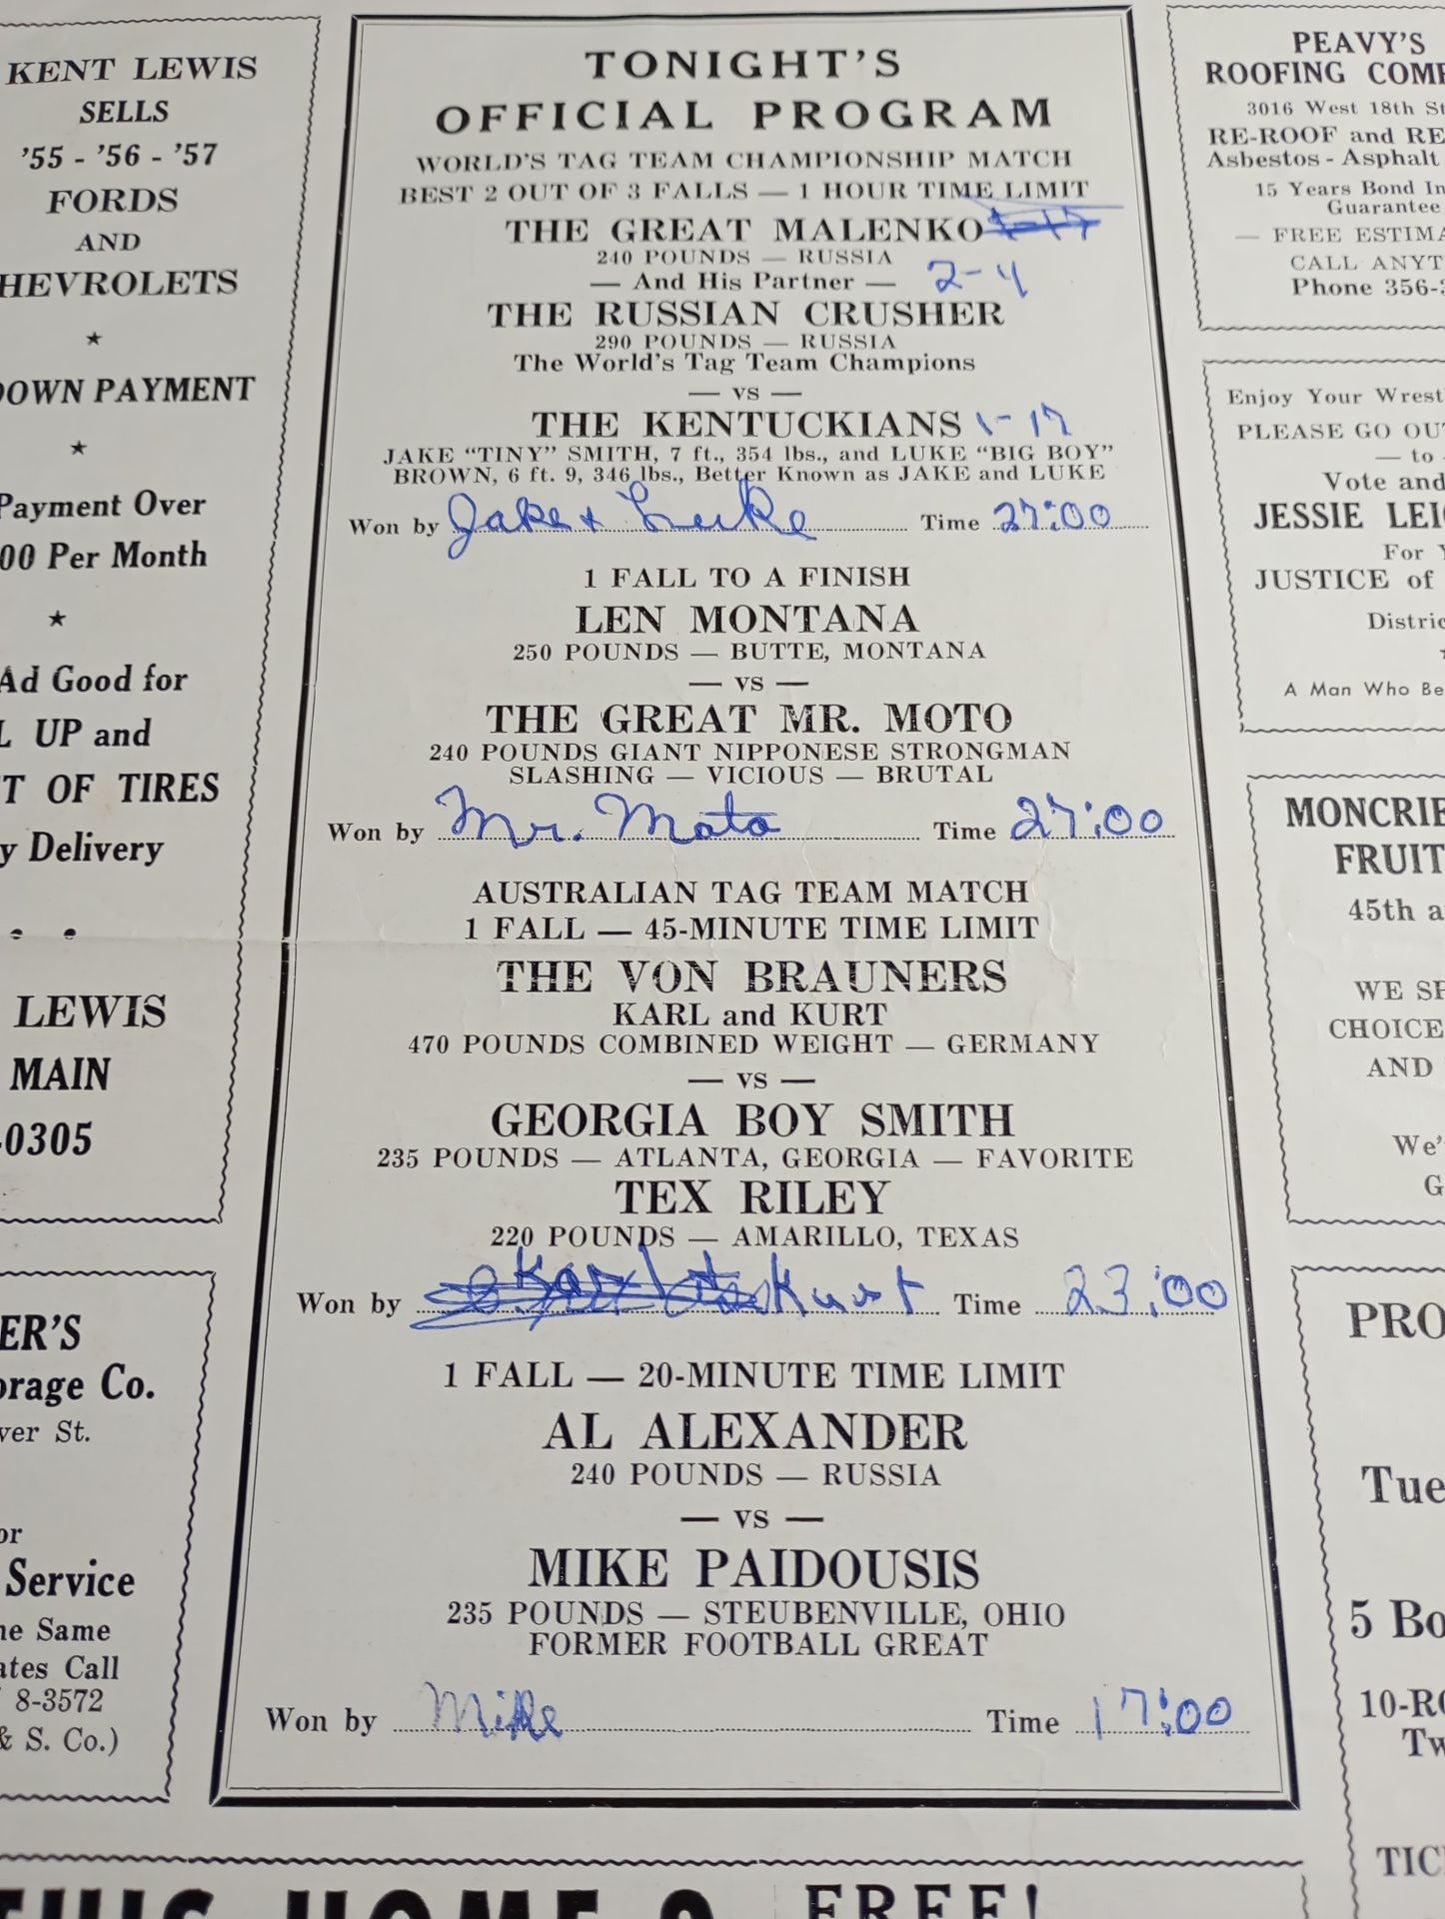 KENT LEWIS
SELLS
'55 - '56 - '57
FORDS
AND
HEVROLETS
★
DOWN PAYMENT
★
Payment Over
00 Per Month
★
Ad Good for
L UP and
T OF TIRES
y Delivery
LEWIS
MAIN
-0305
ER'S
orage Co.
ver St.
or
Service
ne Same
ates Call
8-3572
& S. Co.)
TONIGHT'S
OFFICIAL PROGRAM
WORLD'S TAG TEAM CHAMPIONSHIP MATCH
BEST 2 OUT OF 3 FALLS — 1 HOUR TIME LIMIT
THE GREAT MALENKO
240 POUNDS — RUSSIA
— And His Partner — 2-4
THE RUSSIAN CRUSHER
290 POUNDS — RUSSIA
The World's Tag Team Champions
— VS —
THE KENTUCKIANS 1-17
JAKE "TINY" SMITH, 7 ft., 354 lbs., and LUKE "BIG BOY"
BROWN, 6 ft. 9, 346 lbs., Better Known as JAKE and LUKE
Won by Jake + Luke Time 27:00
1 FALL TO A FINISH
LEN MONTANA
250 POUNDS — BUTTE, MONTANA
— VS —
THE GREAT MR. MOTO
240 POUNDS GIANT NIPPONESE STRONGMAN
SLASHING — VICIOUS — BRUTAL
Won by Mr. Moto Time 27:00
AUSTRALIAN TAG TEAM MATCH
1 FALL — 45-MINUTE TIME LIMIT
THE VON BRAUNERS
KARL and KURT
470 POUNDS COMBINED WEIGHT — GERMANY
— VS —
GEORGIA BOY SMITH
235 POUNDS — ATLANTA, GEORGIA — FAVORITE
TEX RILEY
220 POUNDS — AMARILLO, TEXAS
Won by Kurt Time 23:00
1 FALL — 20-MINUTE TIME LIMIT
AL ALEXANDER
240 POUNDS — RUSSIA
— VS —
MIKE PAIDOUSIS
235 POUNDS — STEUBENVILLE, OHIO
FORMER FOOTBALL GREAT
Won by Mike Time 17:00
PEAVY'S
ROOFING COMP
3016 West 18th St
RE-ROOF and RE
Asbestos - Asphalt
15 Years Bond In
Guarantee
— FREE ESTIMA
CALL ANYT
Phone 356-
Enjoy Your Wrest
PLEASE GO OUT
— to
Vote and
JESSIE LEI
For
JUSTICE of
Distric
A Man Who Be
MONCRIE
FRUIT
45th a
WE SP
CHOICE
AND
We'
G
PRO
Tue
5 Bo
10-RO
Tw
TIC
THIS HOME ?
FREE!